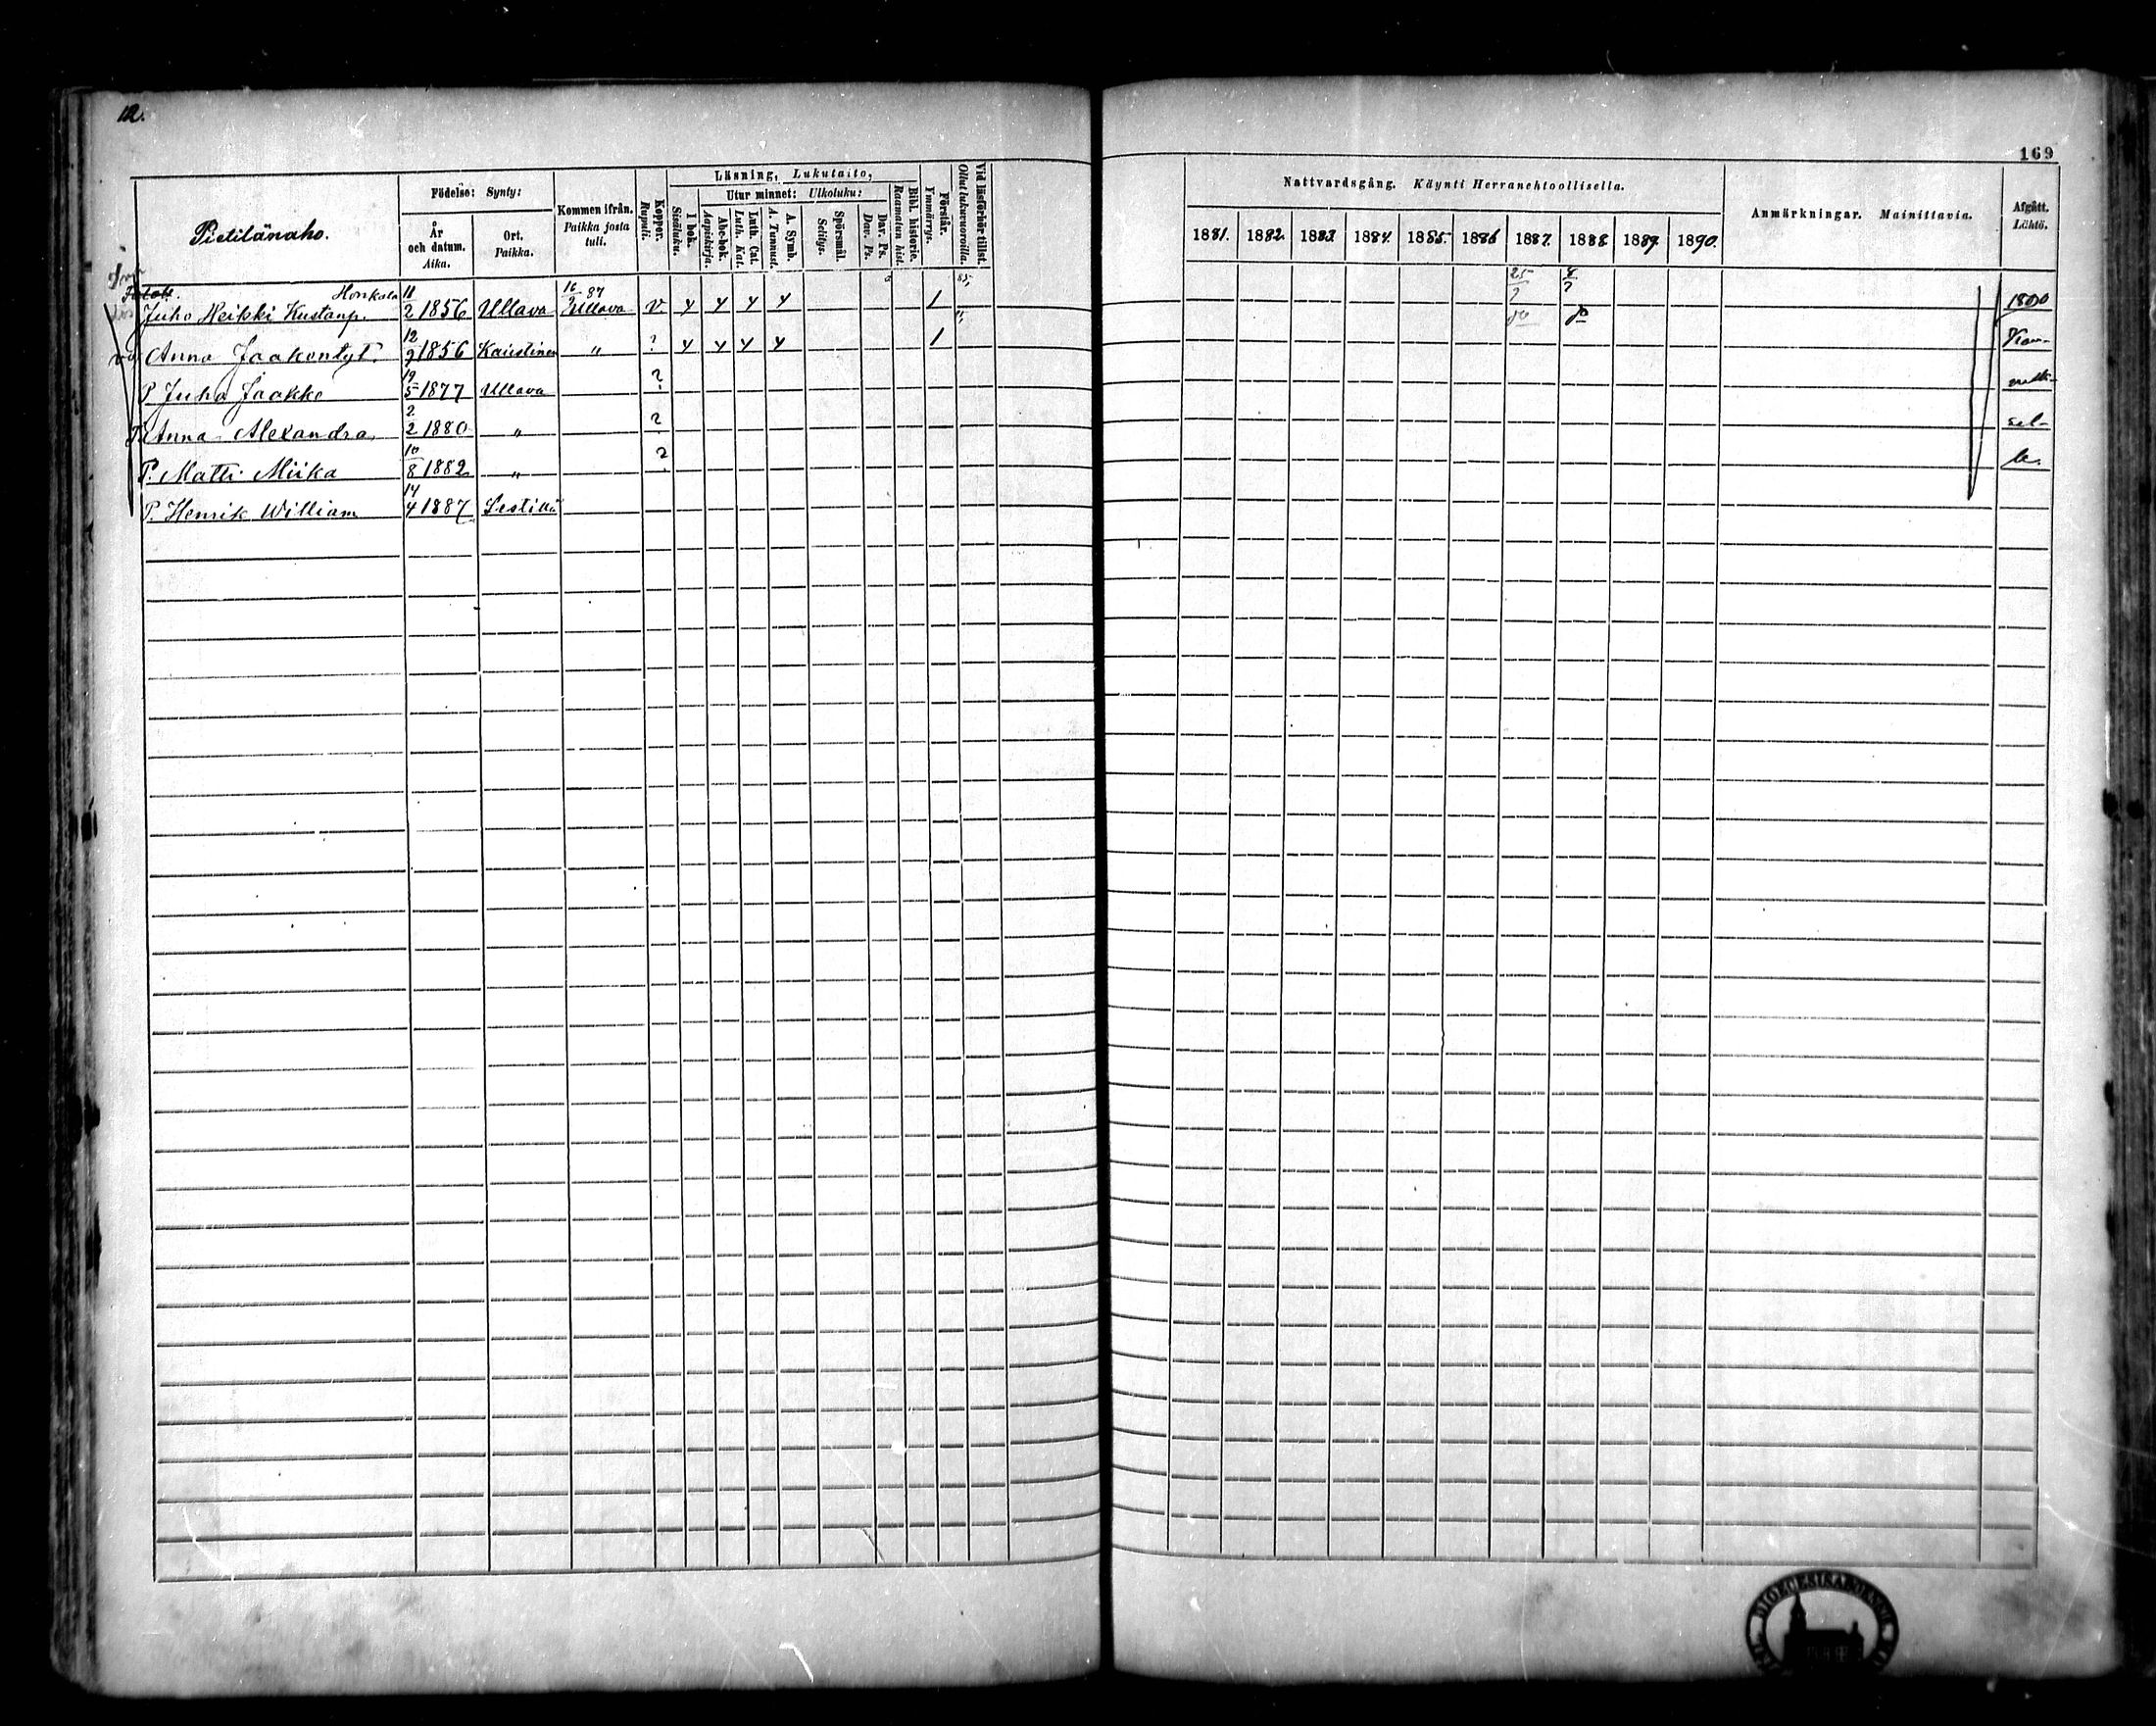 12.
169
Pietilänaho.
Födelse: Synty:
År och datum. Aika.
Ort. Paikka.
Kommen ifrån. Paikka josta tuli.
Koppor. Rupuli.
Läsning, Lukutaito,
I bok. Sisäluku.
Utur minnet: Ulkoluku:
Abc-bok. Aapiskirja.
Luth. Cat. Luth. Kat.
A. Symb. A. Tunnust.
Spörsmål. Selitys.
Dav. Ps. Dav. Ps.
Bibl. historie. Raamatun hist.
Förstår. Ymmärrys.
Vid läsförhör tillst. Ollut lukuvuoroilla.
Nattvardsgång. Käynti Herranehtoollisella.
1881. 1882. 1883. 1884. 1885. 1886. 1887. 1888. 1889. 1890.
Anmärkningar. Mainittavia.
Afgått. Lähtö.
Honkala
Juho Heikki Kustanp. 11/2 1856 Ullava 16/2 87 Ullava v. 4 4 4 4 1 1890
Anna Jaakontyt. 12/9 1856 Kaustinen " ? 4 4 4 4 1
P. Juho Jaakko 19/5 1877 Ullava ?
T. Anna Alexandra 2/2 1880 " ?
P. Matti Miika 10/8 1882 " ?
P. Henrik William 14/4 1887 Lestijä